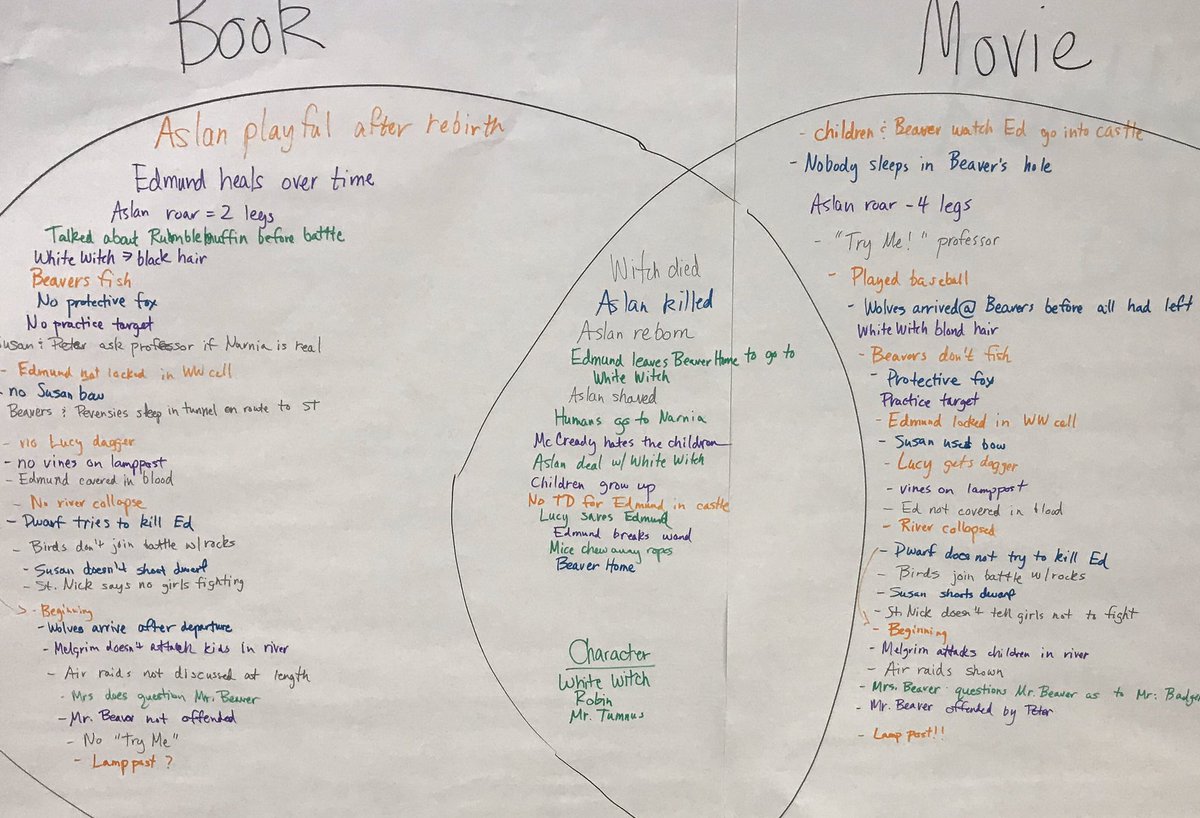 Book
Aslan playful after rebirth
Edmund heals over time
Aslan roar = 2 legs
Talked about Rumblebuffin before battle
White Witch → black hair
Beavers fish
No protective fox
No practice target
Susan & Peter ask professor if Narnia is real
- Edmund not locked in WW cell
- no Susan bow
Beavers & Pevensies sleep in tunnel en route to ST
- no Lucy dagger
- no vines on lamppost
- Edmund covered in blood
- No river collapse
- Dwarf tries to kill Ed
- Birds don't join battle w/rocks
- Susan doesn't shoot dwarf
- St. Nick says no girls fighting
- Beginning
- Wolves arrive after departure
- Melgrim doesn't attack kids in river
- Air raids not discussed at length
- Mrs does question Mr. Beaver
- Mr. Beaver not offended
- No "Try Me"
- Lamppost ?
Witch died
Aslan killed
Aslan reborn
Edmund leaves Beaver Home to go to
White Witch
Aslan shaved
Humans go to Narnia
McCready hates the children
Aslan deal w/ White Witch
Children grow up
No TD for Edmund in castle
Lucy saves Edmund
Edmund breaks wand
Mice chew away ropes
Beaver Home
Character
White Witch
Robin
Mr. Tumnus
Movie
- children & Beaver watch Ed go into castle
- Nobody sleeps in Beaver's hole
Aslan roar - 4 legs
- "Try Me!" professor
- Played baseball
- Wolves arrived @ Beavers before all had left
White Witch blond hair
- Beavers don't fish
- Protective fox
Practice target
- Edmund locked in WW cell
- Susan used bow
- Lucy gets dagger
- vines on lamppost
- Ed not covered in blood
- River collapsed
- Dwarf does not try to kill Ed
- Birds join battle w/rocks
- Susan shoots dwarf
- St. Nick doesn't tell girls not to fight
- Beginning
- Melgrim attacks children in river
- Air raids shown
- Mrs. Beaver questions Mr. Beaver as to Mr. Badger
- Mr. Beaver offended by Peter
- Lamp post!!